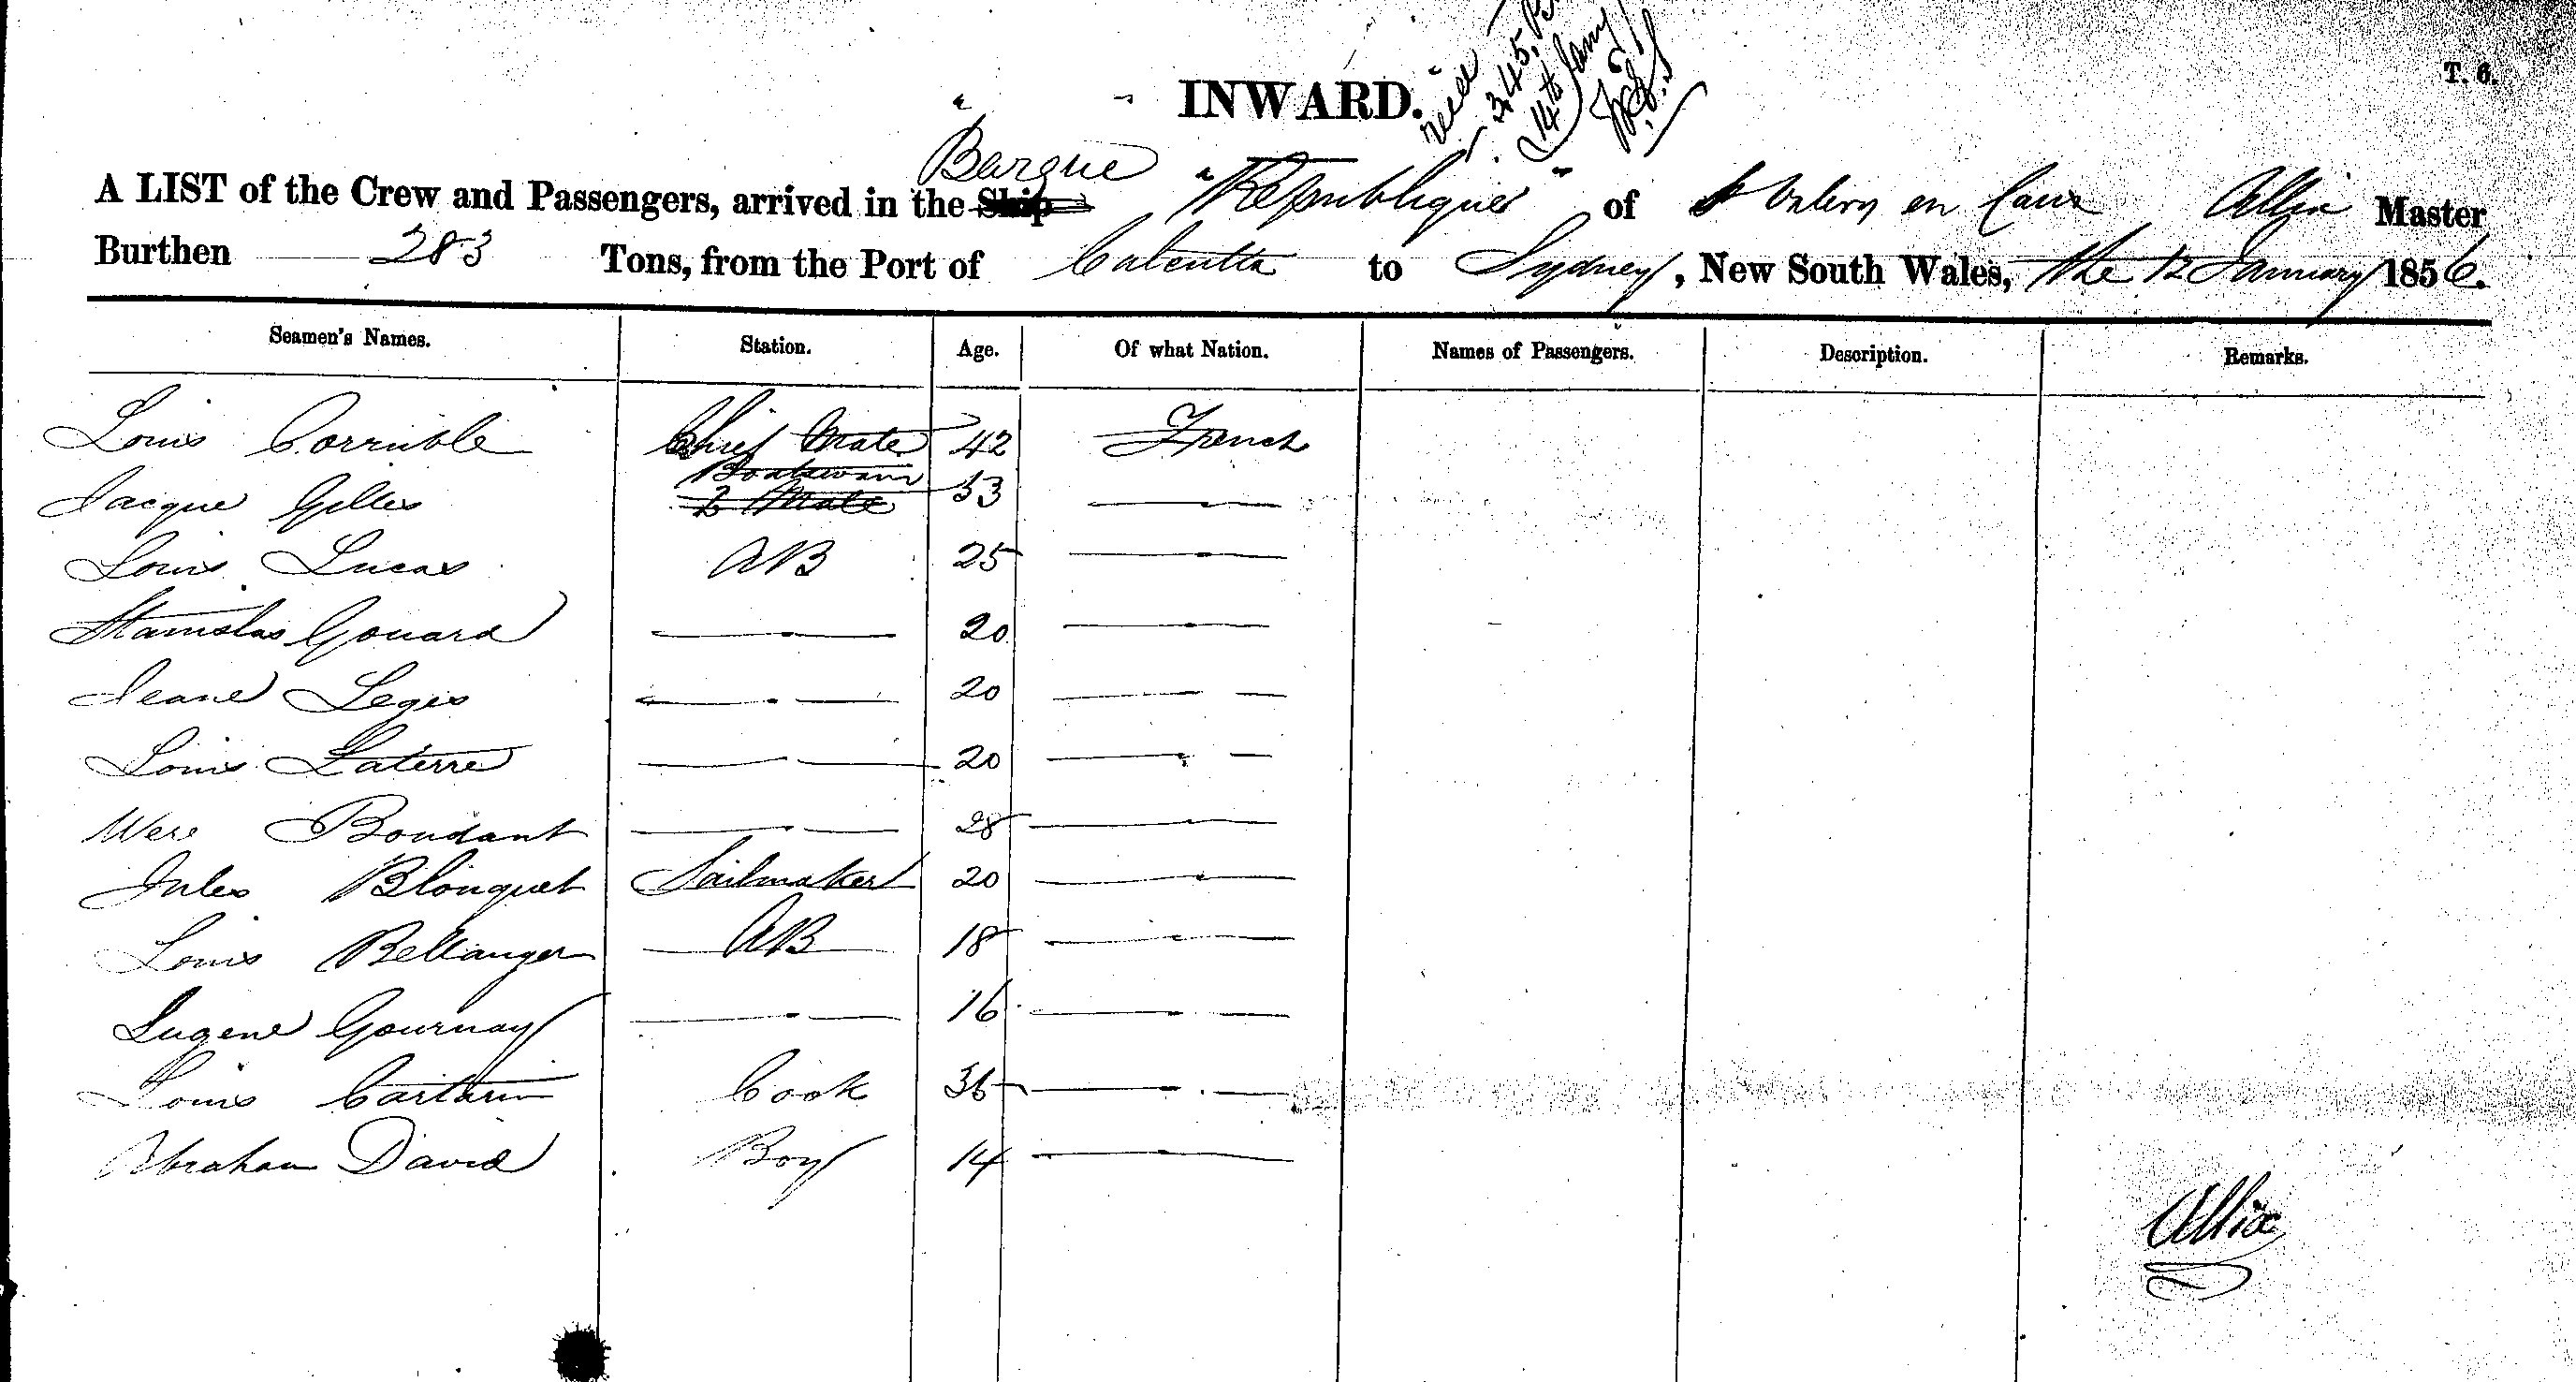 T. 6.
INWARD.
345,
14th Jany
Barque
A LIST of the Crew and Passengers, arrived in the Ship "Republique" of St Valery en Caux Allix Master
Burthen 283 Tons, from the Port of Calcutta to Sydney, New South Wales, the 12 January 1856.
Seamen's Names. Station. Age. Of what Nation. Names of Passengers. Description. Remarks.
Louis Corruble Chief Mate 42 French
Boatswain
Jacque Gilles 2 Mate 53 —
Louis Lucas AB 25 —
Stanislas Gouard — 20 —
Jeane Legis — 20 —
Louis Laterre — 20 —
Were Boudant — 28 —
Jules Blonquet Sailmaker 20 —
Louis Bellanger AB 18 —
Eugene Gournay — 16 —
Louis Cook 36 —
Abraham David Boy 14 —
Allix